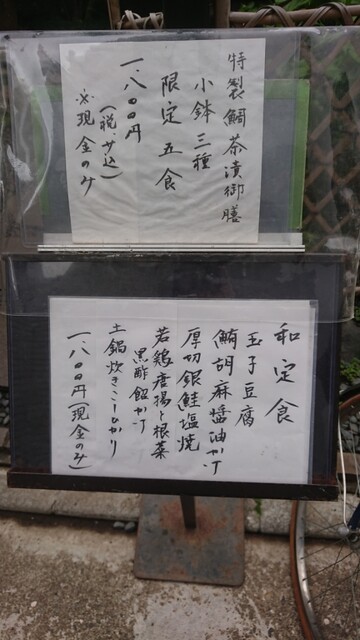 特製鯛茶漬御膳
小鉢三種
限定五食
一、八〇〇円
(税・サ込)
※現金のみ
和定食
玉子豆腐
鮪胡麻醤油かけ
厚切銀鮭塩焼
若鶏唐揚と根菜
黒酢餡かけ
土鍋炊きこしひかり
一、八〇〇円(現金のみ)